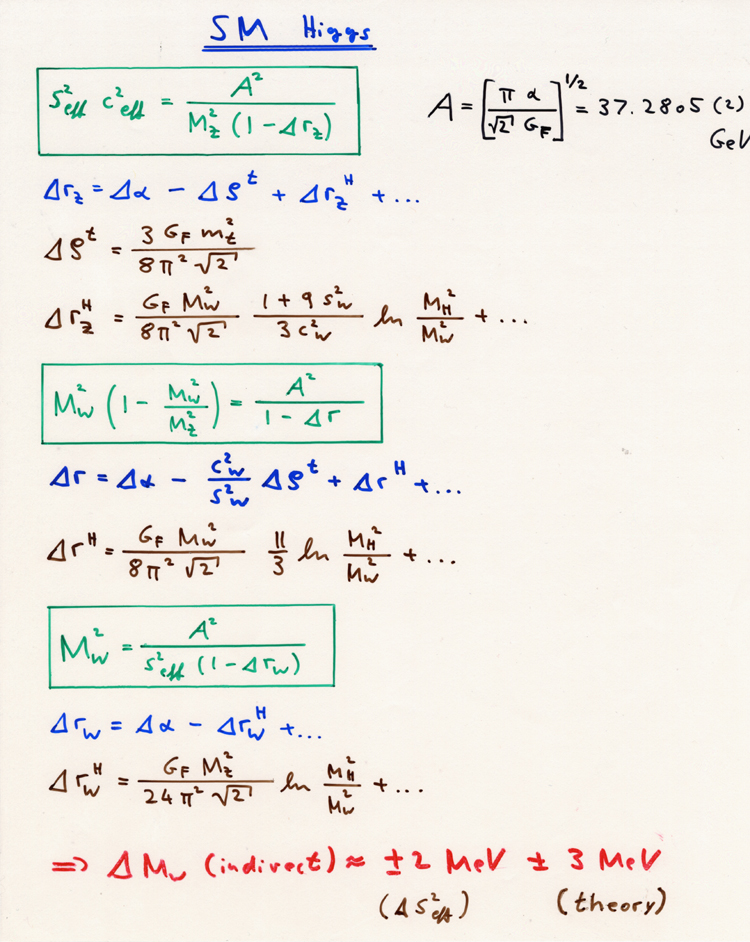 SM Higgs
s²_eff c²_eff = A² / M_Z² (1 - Δr_Z)
A = [πα / √2 G_F]^1/2 = 37.2805 (2) GeV
Δr_Z = Δα - Δρ^t + Δr_Z^H + ...
Δρ^t = 3 G_F m_t² / 8π² √2
Δr_Z^H = G_F M_W² / 8π² √2 (1 + 9 s²_W) / 3 c²_W ln M_H² / M_W² + ...
M_W² (1 - M_W² / M_Z²) = A² / 1 - Δr
Δr = Δα - c²_W / s²_W Δρ^t + Δr^H + ...
Δr^H = G_F M_W² / 8π² √2 11/3 ln M_H² / M_W² + ...
M_W² = A² / s²_eff (1 - Δr_W)
Δr_W = Δα - Δr_W^H + ...
Δr_W^H = G_F M_Z² / 24π² √2 ln M_H² / M_W² + ...
⇒ Δ M_W (indirect) ≈ ± 2 MeV ± 3 MeV
(Δ s²_eff) (theory)